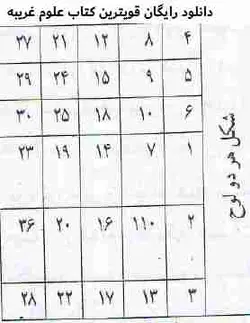 دانلود رایگان قویترین کتاب علوم غریبه
۲۷ ۲۱ ۱۲ ۸ ۴
۲۹ ۲۴ ۱۵ ۹ ۵
۳۰ ۲۵ ۱۸ ۱۰ ۶
۲۳ ۱۹ ۱۴ ۷ ۱
۳۶ ۲۰ ۱۶ ۱۱۰ ۲
۲۸ ۲۲ ۱۷ ۱۳ ۳
شکل هر دو لوح